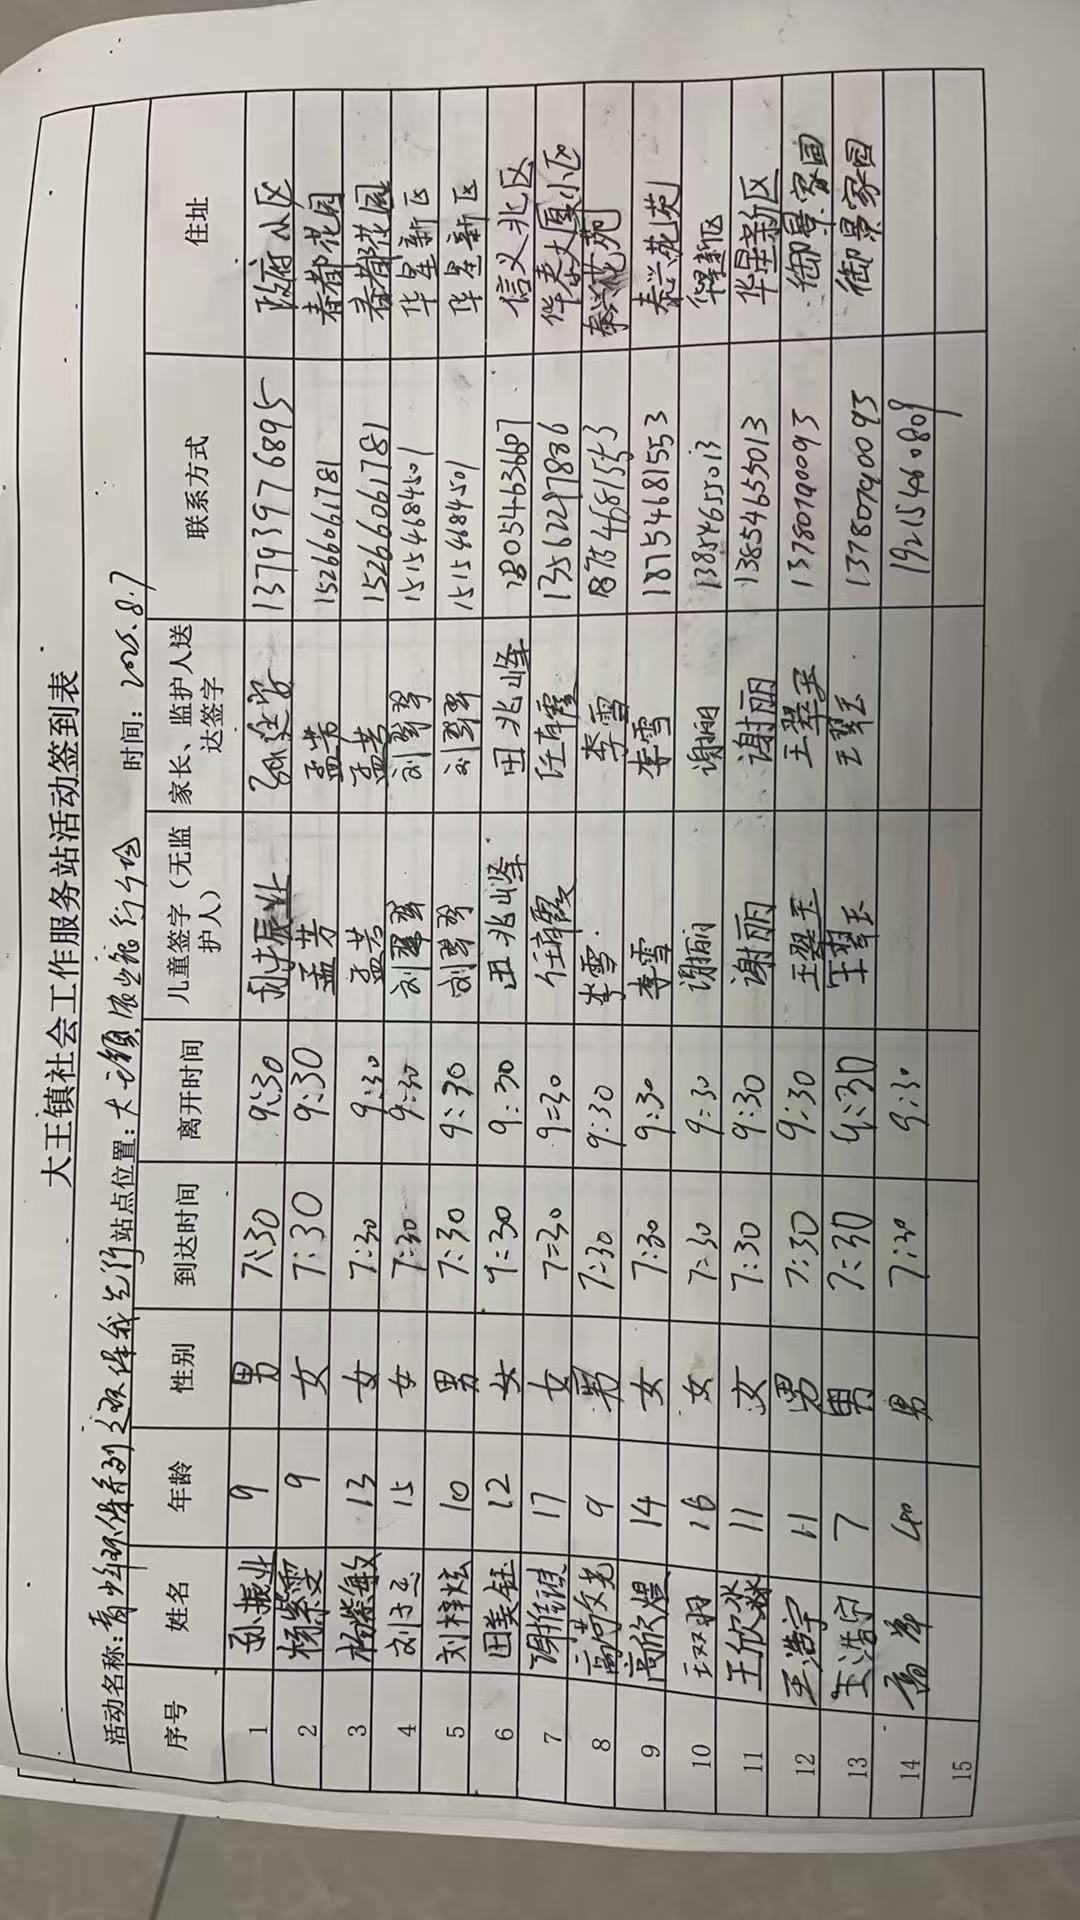 大王镇社会工作服务站活动签到表
活动名称：青少年环保系列之环保我先行 站点位置：大王镇 时间：2025.8.7
序号 姓名 年龄 性别 到达时间 离开时间 儿童签字（无监护人） 家长、监护人送达签字 联系方式 住址
1 孙振业 9 男 7:30 9:30 孙振业 13793976895 政府小区
2 杨紫雯 9 女 7:30 9:30 孟芳 孟芳 15266061781 春都花园
3 杨紫敏 13 女 7:30 9:30 孟芳 孟芳 15266061781 春都花园
4 15 女 7:30 9:30 刘翠翠 刘翠翠 15154684501 华星新区
5 刘梓炫 10 男 7:30 9:30 刘翠翠 刘翠翠 15154684501 华星新区
6 田美钰 12 女 7:30 9:30 田兆峰 田兆峰 18054636607 信义北区
7 17 女 7:30 9:30 任春霞 任春霞 13562297886 华泰大厦小区
8 9 男 7:30 9:30 李雪 李雪 18754681553 泰兴花苑
9 高欣煜 14 女 7:30 9:30 李雪 李雪 18754681553 泰兴花苑
10 16 女 7:30 9:30 谢丽 谢丽 13854655013 华星新区
11 王欣淼 11 女 7:30 9:30 谢丽 谢丽 13854655013 华星新区
12 王浩宇 11 男 7:30 9:30 王翠玉 王翠玉 13780790093 御景家园
13 王浩宁 7 男 7:30 9:30 王翠玉 王翠玉 13780790093 御景家园
14 40 男 7:30 9:30 19215460809
15